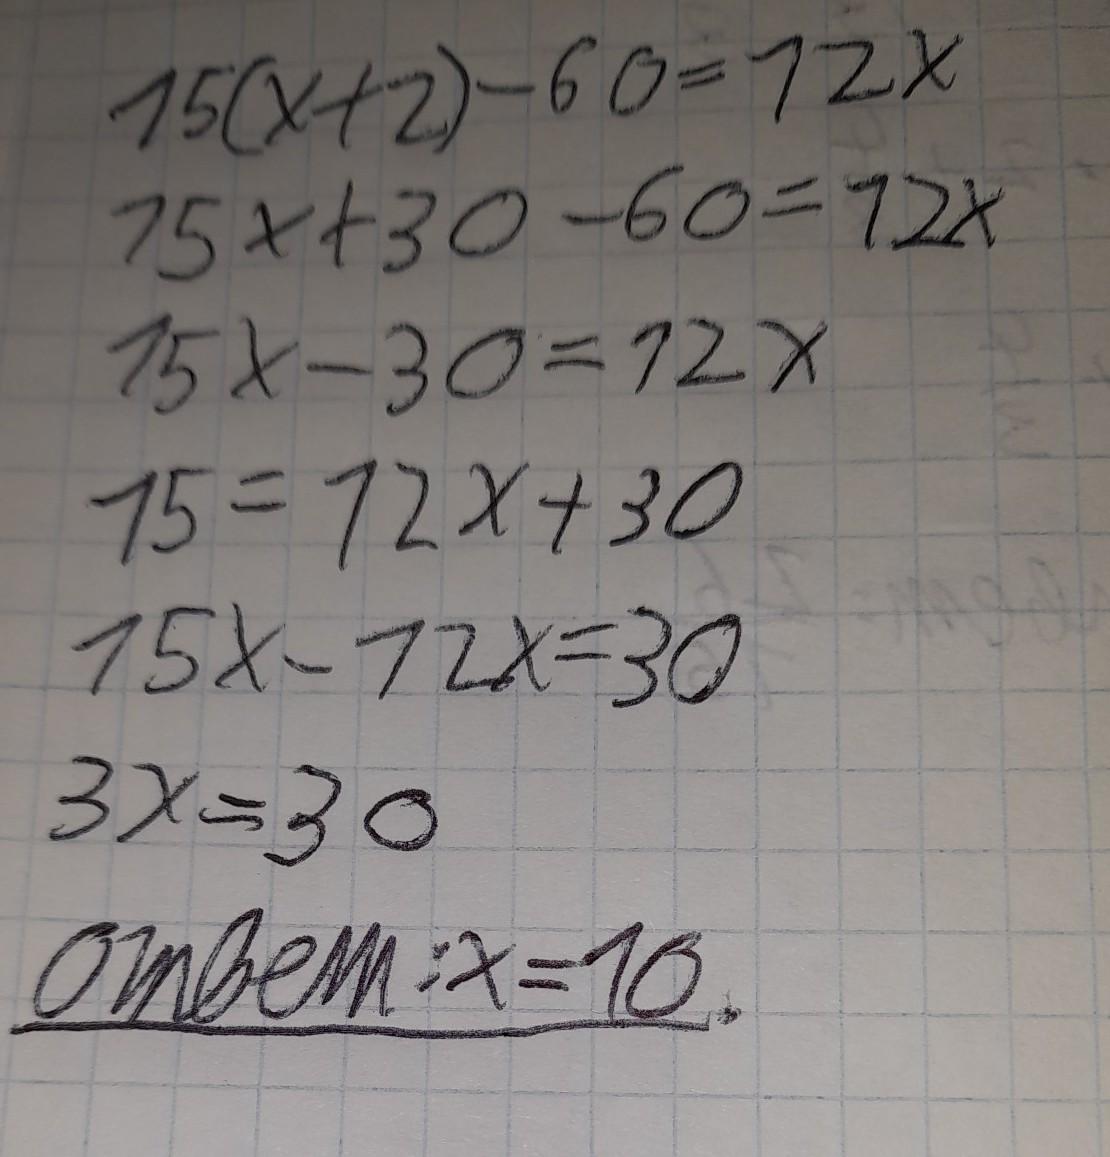 15(x+2)-60=12x
15x+30-60=12x
15x-30=12x
15=12x+30
15x-12x=30
3x=30
ответ:x=10.